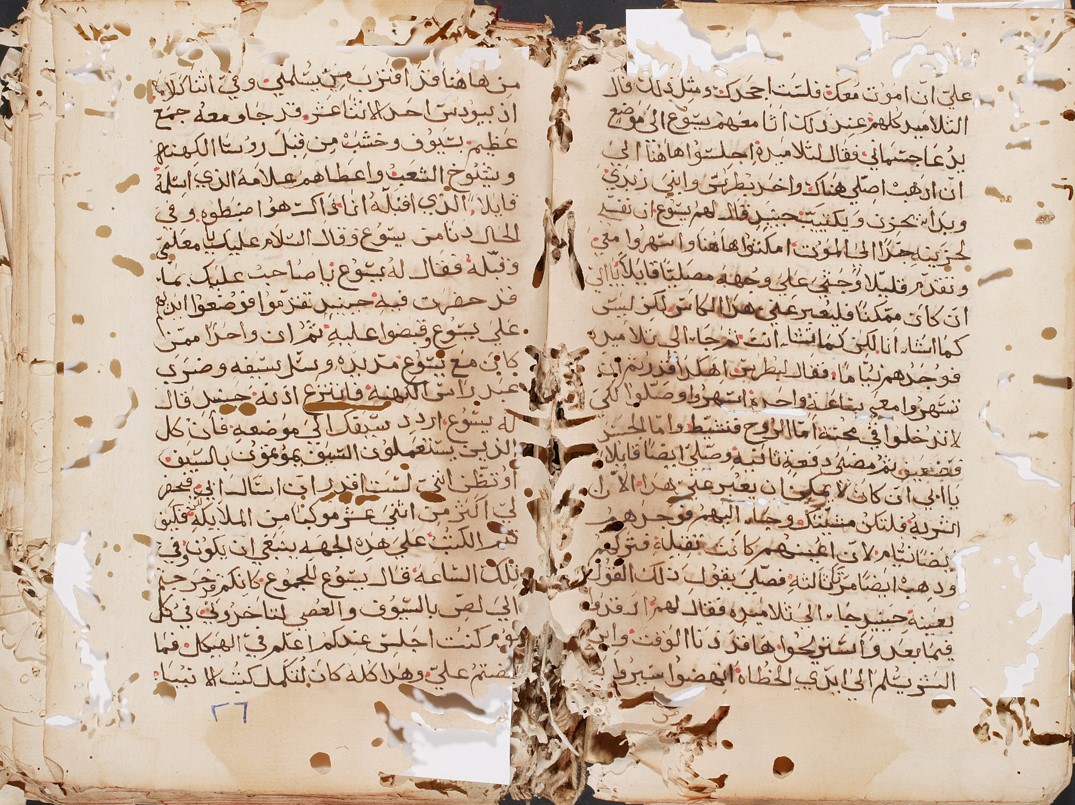 على ان اموت معك فلست اجحدك ومثل ذلك قال
التلاميذ كلهم عند ذلك اتا معهم يسوع الى موضع
يدعا جسمانى فقال لتلاميذه اجلسوا هاهنا الى
ان اذهب اصلى هناك واخذ بطرس وابنى زبدى
وبدا يحزن ويكتيب حينيذ قال لهم يسوع ان نفسى
لحزينه جدا الى الموت امكثوا هاهنا واسهروا معى
وتقدم قليلا وجثى على وجهه مصليا قايلا يا ابى
ان كان ممكنا فليعبر على هذا الكاس لكن ليس
كما اشا انا لكن كما تشا انت ثم جا الى تلاميذه
فوجدهم نياما فقال لبطرس اهكذا قدرتم
تسهروا معى ساعة واحدة اسهروا وصلوا لكى
لا تدخلوا فى محنة اما الروح فنشيط واما الجسد
فضعيف ثم مضى دفعة ثانية وصلى ايضا قايلا
يا ابى ان كان لا يمكن ان يعبر عنى هذا الا ان
اشربه فلتكن مشيتك وجا اليهم فوجدهم
ايضا نيام لان اعينهم كانت ثقيلة فتركهم
وذهب ايضا مرة ثالثة فصلى يقول ذلك القول
بعينه حينيذ جا الى تلاميذه فقال لهم ارقدوا
فيما بعد واستريحوا ها قد دنا الوقت وابن
البشر يسلم الى ايدى الخطاة انهضوا سيروا
من هاهنا قد اقترب من يسلمنى وفى اثنا كلامه
اذ يهودس احد الاثنا عشر قد جا ومعه جمع
عظيم بسيوف وخشب من قبل روسا الكهنة
وشيوخ الشعب واعطاهم علامه الذى اسلمه
قايلا الذى اقبله انا ذاك هو اضبطوه وفى
الحال دنا من يسوع وقال السلام عليك يا معلمى
وقبله فقال له يسوع يا صاحب عليك بما
قد حضرت فيه حينيذ تقدموا فوضعوا ايديهم
على يسوع وقبضوا عليه ثم ان واحدا ممن
كان مع يسوع مد يده وسل سيفه وضرب
عبد راس الكهنة فانتزع اذنه حينيذ قال
له يسوع اردد سيفك الى موضعه فان كل
الذين يستعملون السيف يموتون بالسيف
او تظن اننى لست اقدر ان اسال ابى فيحضر
لى اكثر من اثنى عشر موكبا من الملايكة فكيف
تتم الكتب على هذه الجهه ينبغى ان يكون فى
تلك الساعة قال يسوع للجموع كانكم خرجتم
الى لص بالسيوف والعصى لتاخذونى فى كل
يوم كنت اجلس عندكم اعلم فى الهيكل فما
قبضتم على وهذا كله كان لتكمل كتب الانبيا
٢٦